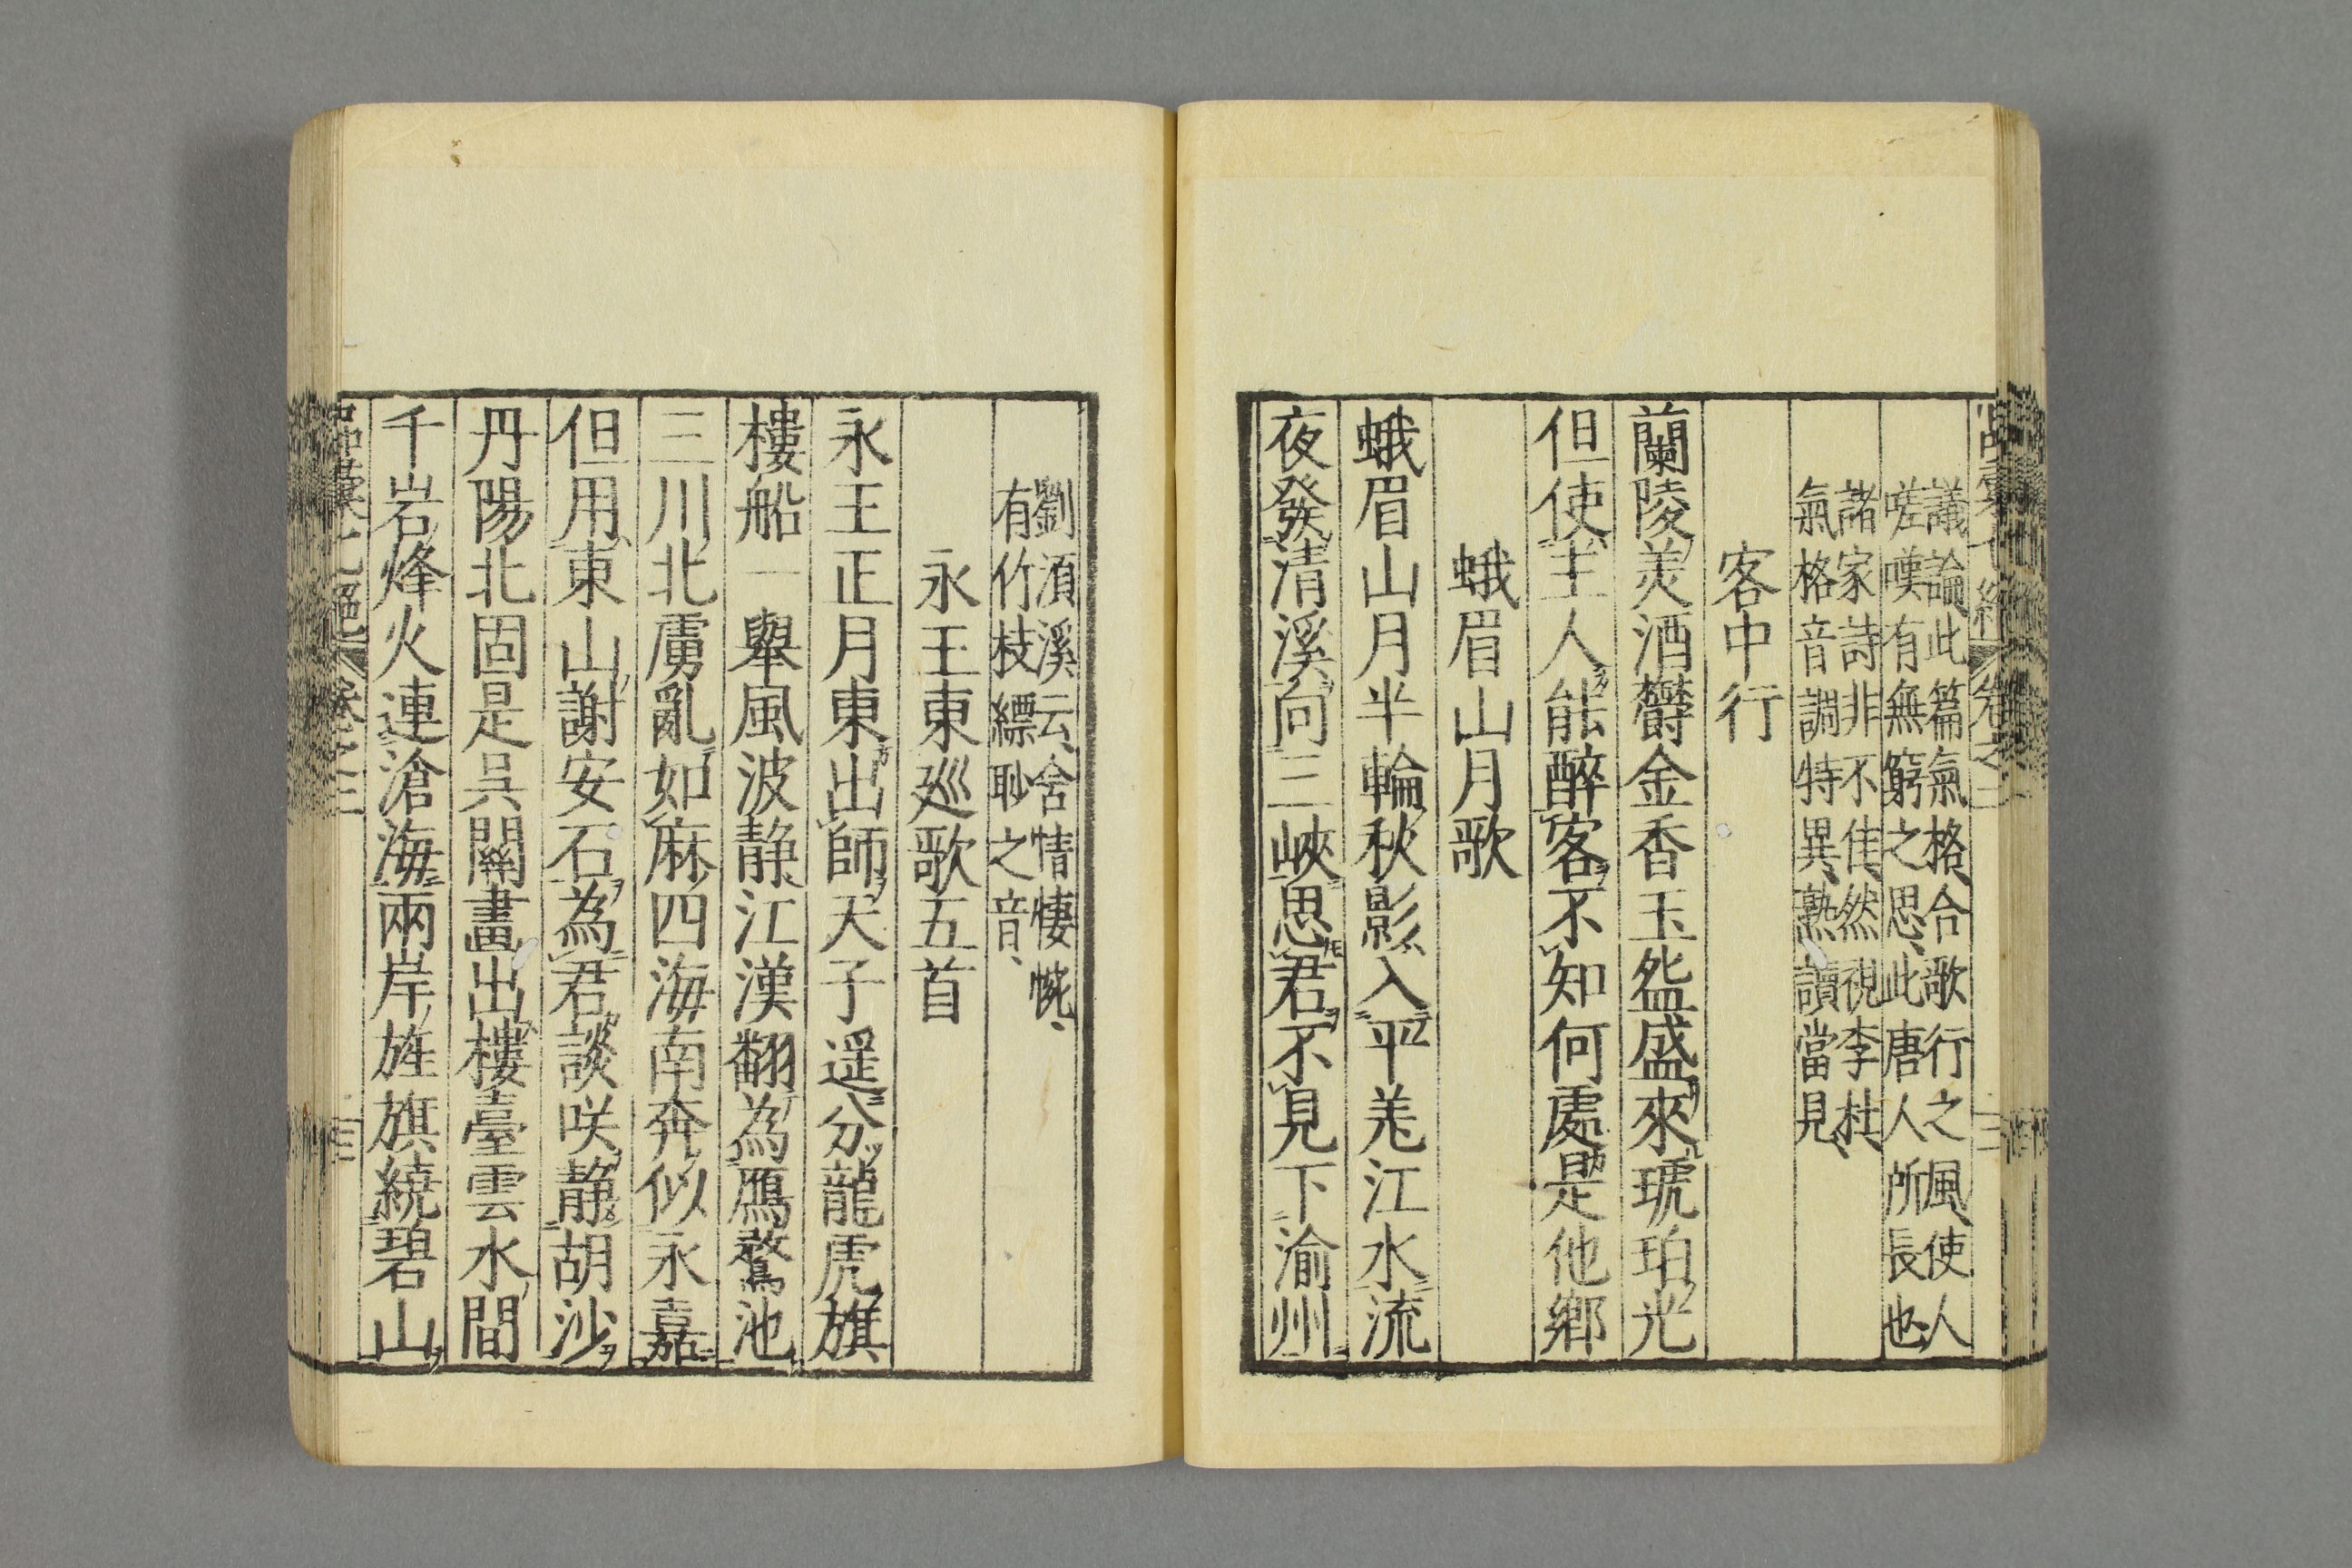 議論此篇氣格合歌行之風使人
嗟嘆有無窮之思此唐人所長也
諸家詩非不佳然視李杜
氣格音調特異熟讀當見
客中行
蘭陵美酒欝金香玉盌盛來琥珀光
但使主人能醉客不知何處是他鄉
蛾眉山月歌
蛾眉山月半輪秋影入平羌江水流
夜發清溪向三峽思君不見下渝州
劉湏溪云含情悽惋
有竹枝縹眇之音
永王東廵歌五首
永王正月東出師天子遥分龍虎旗
樓船一舉風波静江漢翻為鴈鶩池
三川北虜亂如麻四海南奔似永嘉
但用東山謝安石為君談咲静胡沙
丹陽北固是吳關畫出樓臺雲水間
千岩烽火連滄海兩岸旌旗繞碧山
品彙七絕 卷之二